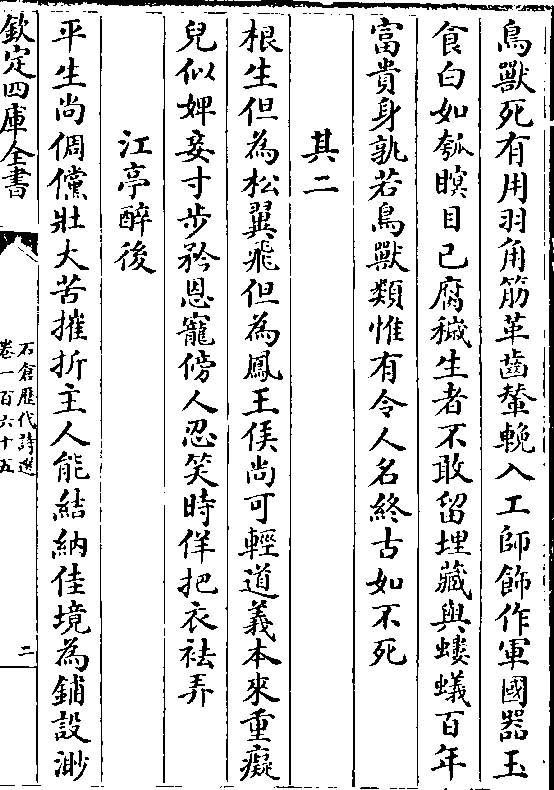 鳥獸死有用羽角筋革齒螯輓入工師飾作軍國器玉
食白如瓠瞑目已腐穢生者不敢留埋藏與螻蟻百年
富貴身孰若鳥獸類惟有令人名終古如不死
其二
根生但為松翼飛但為鳳王侯尚可輕道義本來重癡
兒似婢妾寸步矜恩寵傍人忍笑時佯把衣袪弄
江亭醉後
平生尚倜儻壯大苦摧折主人能結納佳境為鋪設渺
欽定四庫全書
石倉歷代詩選
卷一百六十五
二